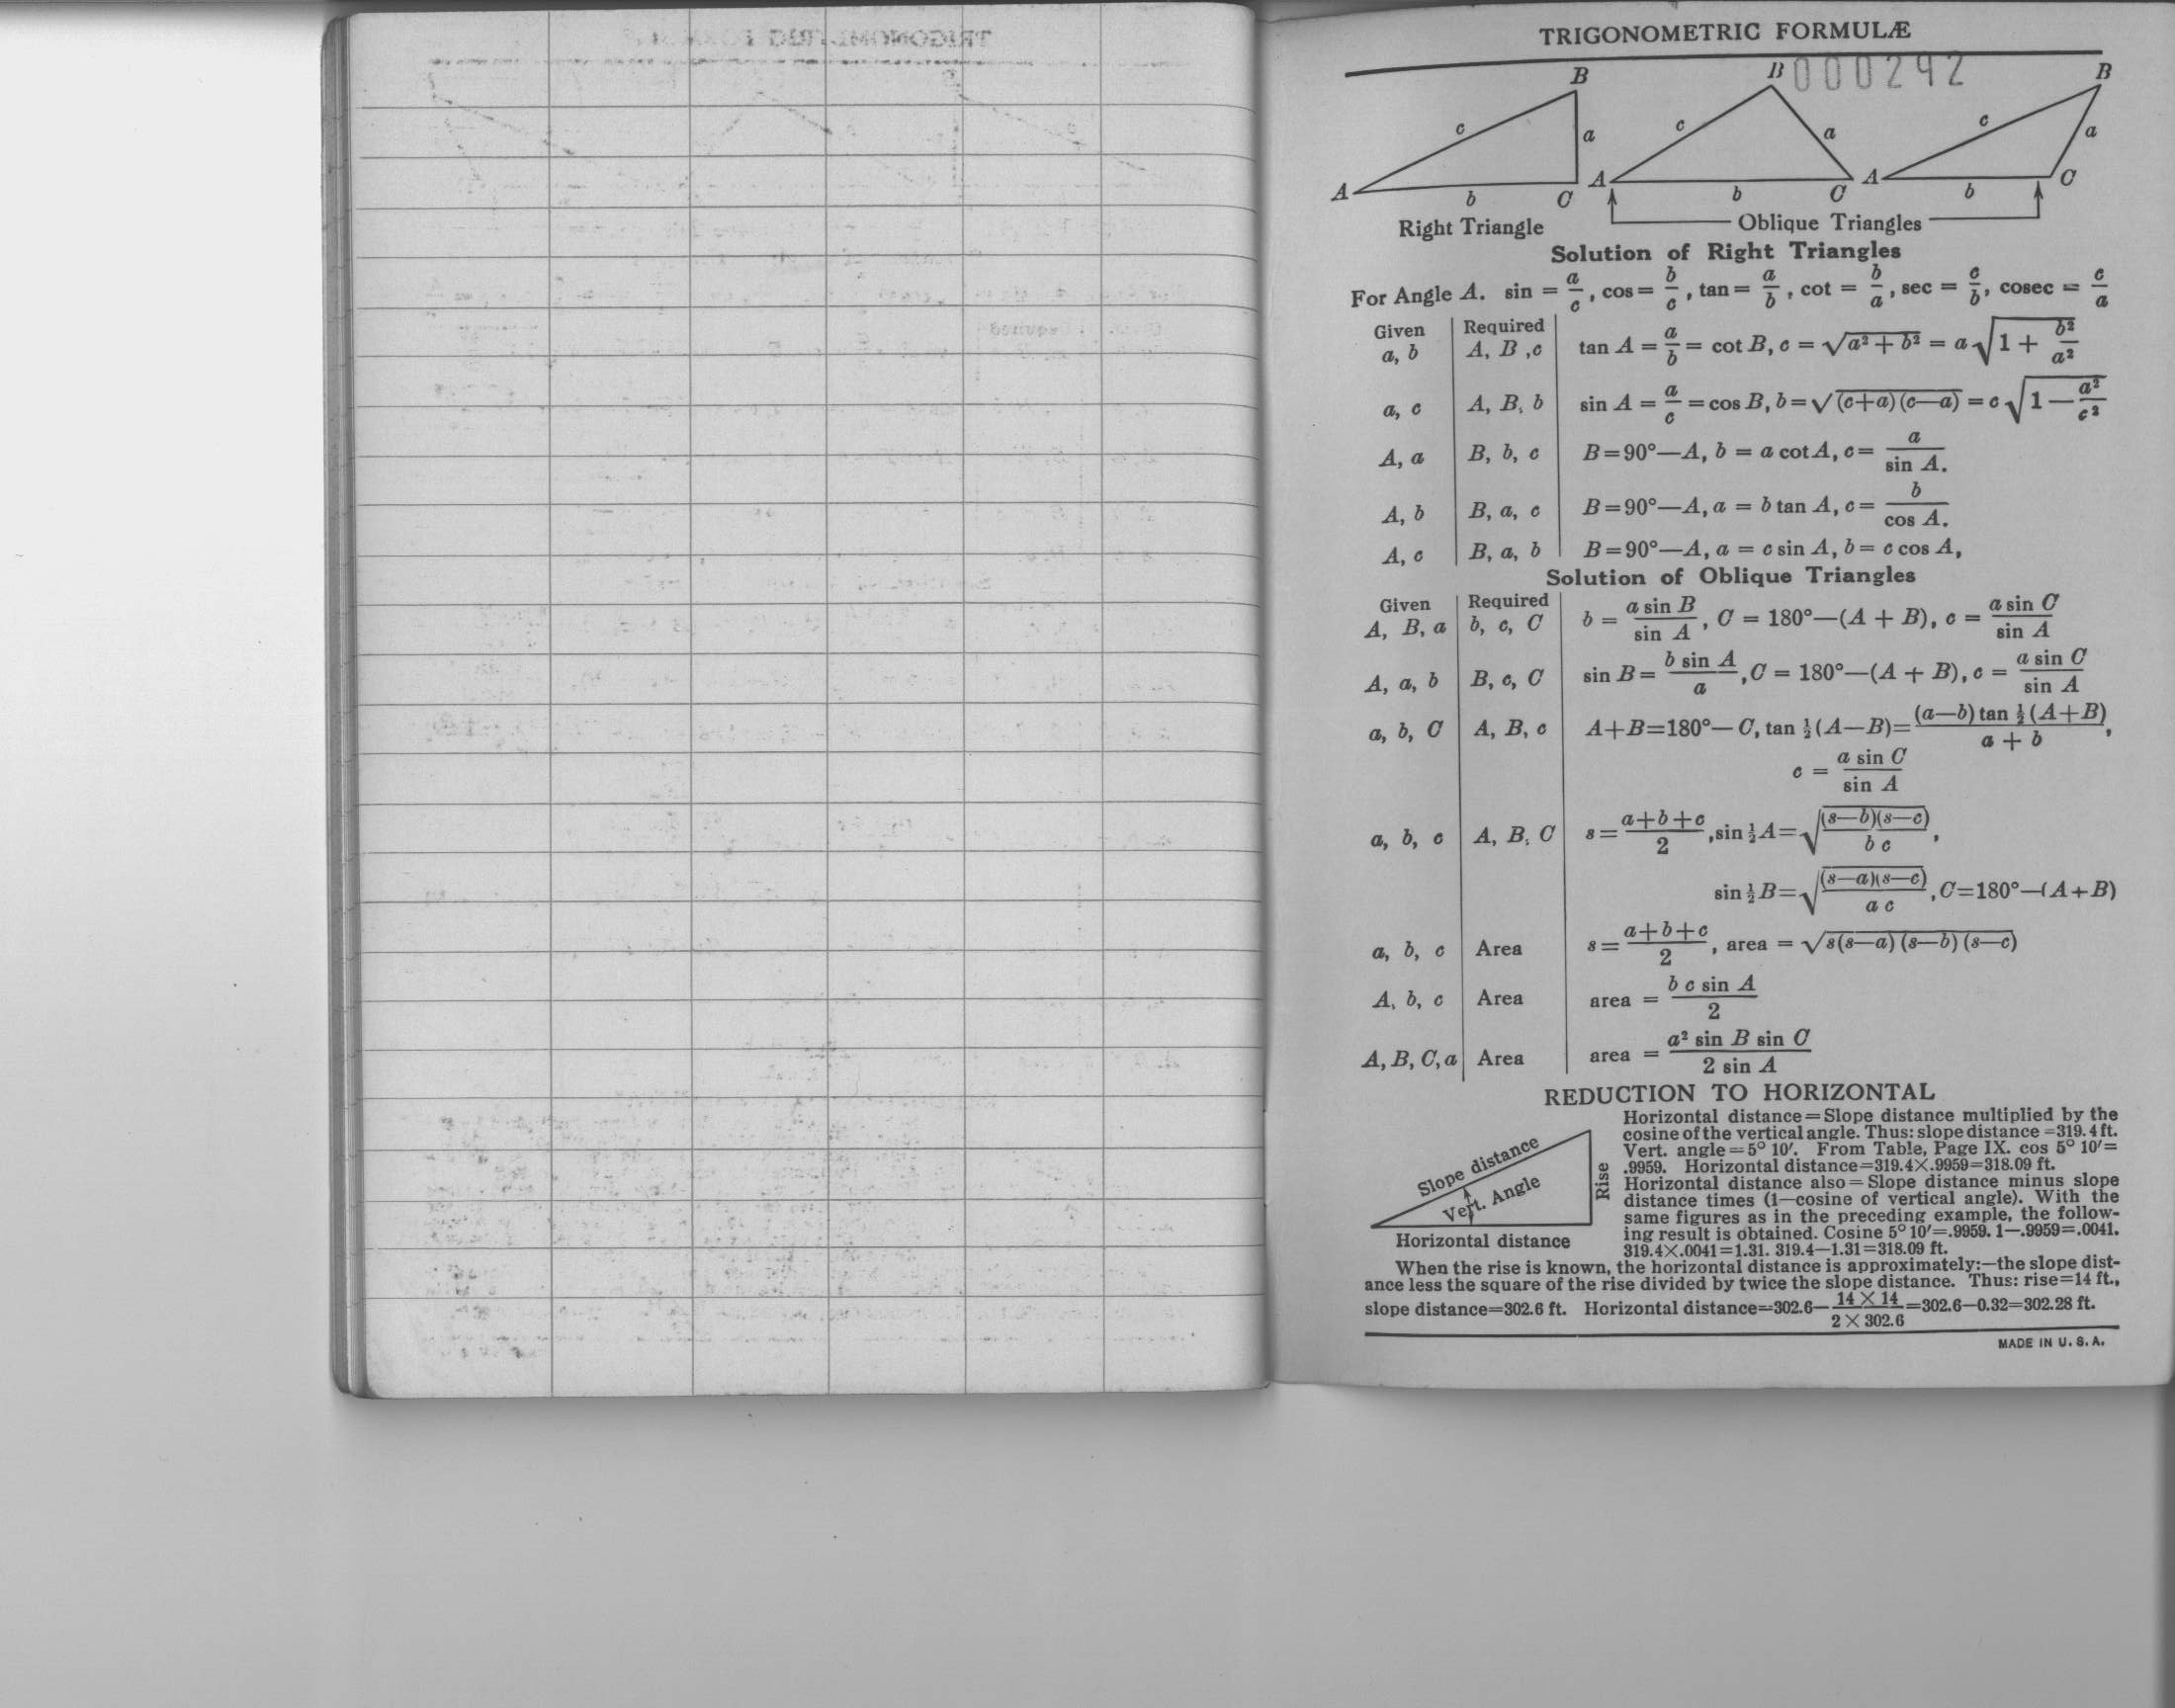 TRIGONOMETRIC FORMULÆ
000242
B
c
a
A
b
C
B
c
a
A
b
C
B
c
a
A
b
C
Right Triangle
Oblique Triangles
Solution of Right Triangles
For Angle A. sin = a/c, cos = b/c, tan = a/b, cot = b/a, sec = c/b, cosec = c/a
Given Required
a, b A, B, c tan A = a/b = cot B, c = √(a² + b²) = a √(1 + b²/a²)
a, c A, B, b sin A = a/c = cos B, b = √((c+a)(c—a)) = c √(1—a²/c²)
A, a B, b, c B=90°—A, b = a cot A, c = a/sin A.
A, b B, a, c B=90°—A, a = b tan A, c = b/cos A.
A, c B, a, b B=90°—A, a = c sin A, b = c cos A,
Solution of Oblique Triangles
Given Required
A, B, a b, c, C b = a sin B/sin A, C = 180°—(A + B), c = a sin C/sin A
A, a, b B, c, C sin B = b sin A/a, C = 180°—(A + B), c = a sin C/sin A
a, b, C A, B, c A+B=180°—C, tan ½(A—B) = (a—b) tan ½(A+B)/a + b,
c = a sin C/sin A
a, b, c A, B, C s = a+b+c/2, sin ½A = √((s—b)(s—c)/b c),
sin ½B = √((s—a)(s—c)/a c), C=180°—(A+B)
a, b, c Area s = a+b+c/2, area = √(s(s—a)(s—b)(s—c))
A, b, c Area area = b c sin A/2
A, B, C, a Area area = a² sin B sin C/2 sin A
REDUCTION TO HORIZONTAL
Slope distance
Vert. Angle
Rise
Horizontal distance
Horizontal distance=Slope distance multiplied by the
cosine of the vertical angle. Thus: slope distance =319.4 ft.
Vert. angle=5° 10′. From Table, Page IX. cos 5° 10′=
.9959. Horizontal distance=319.4×.9959=318.09 ft.
Horizontal distance also=Slope distance minus slope
distance times (1—cosine of vertical angle). With the
same figures as in the preceding example, the follow-
ing result is obtained. Cosine 5° 10′=.9959. 1—.9959=.0041.
319.4×.0041=1.31. 319.4—1.31=318.09 ft.
When the rise is known, the horizontal distance is approximately:—the slope dist-
ance less the square of the rise divided by twice the slope distance. Thus: rise=14 ft.,
slope distance=302.6 ft. Horizontal distance=302.6—14 × 14/2 × 302.6=302.6—0.32=302.28 ft.
MADE IN U. S. A.